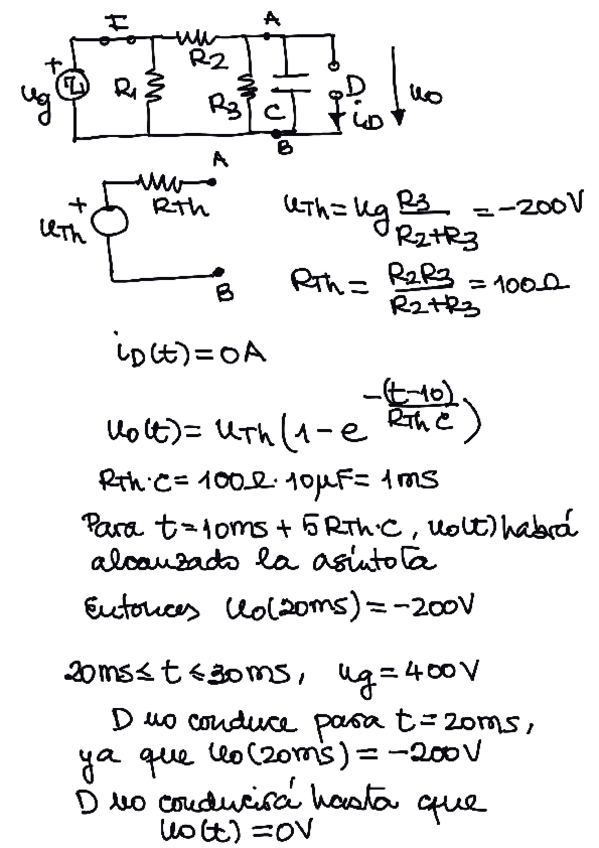 I
A
+
ug
R1
R2
R3
C
D
iD
uo
B
A
+
uTh
RTh
B
uTh = ug R3/(R2+R3) = -200V
RTh = R2R3/(R2+R3) = 100Ω
iD(t) = 0A
uo(t) = uTh (1 - e^(-(t-10)/(RTh C)))
RTh·C = 100Ω·10μF = 1ms
Para t = 10ms + 5RTh·C, uo(t) habrá
alcanzado la asíntota
Entonces uo(20ms) = -200V
20ms ≤ t ≤ 30ms, ug = 400V
D no conduce para t = 20ms,
ya que uo(20ms) = -200V
D no conducirá hasta que
uo(t) = 0V